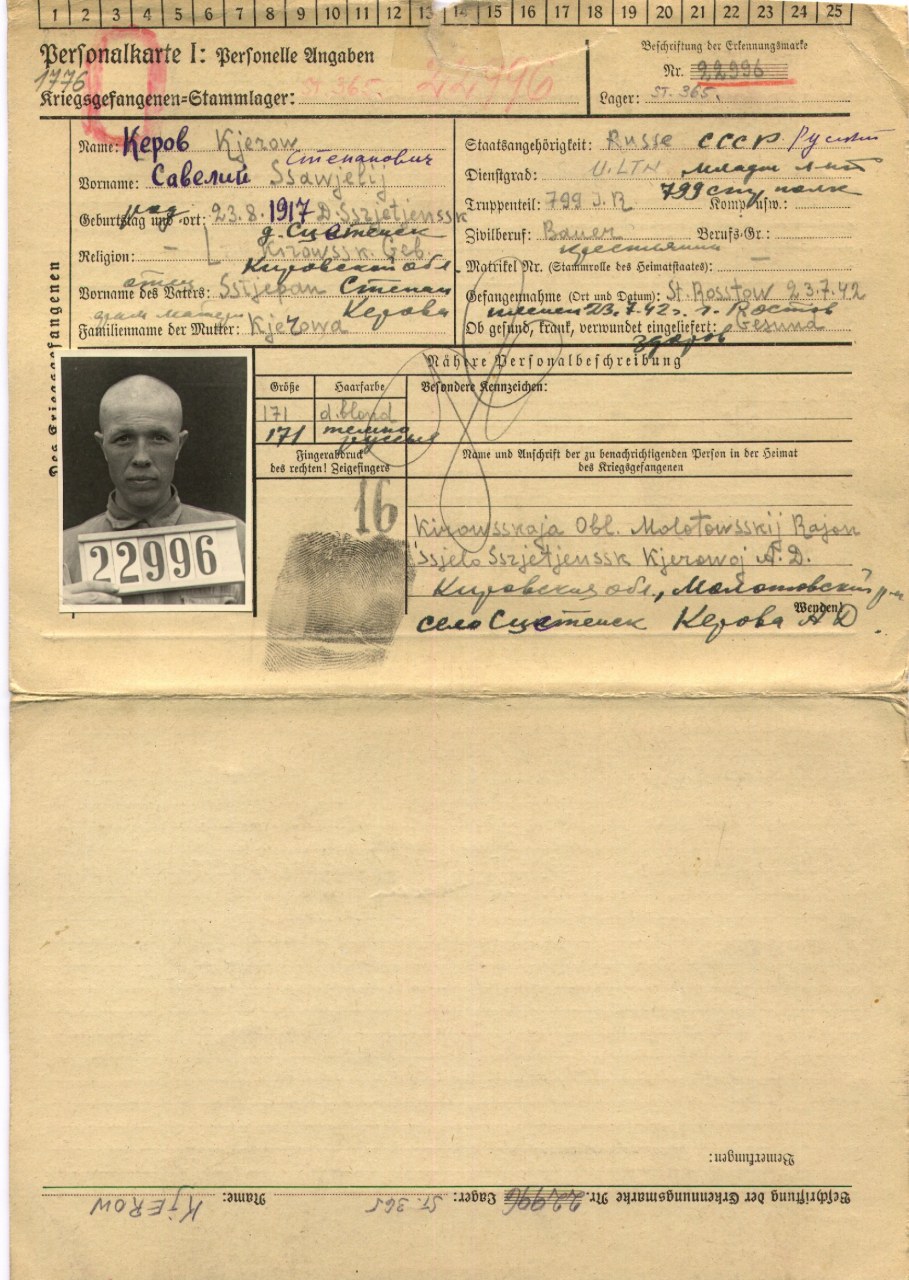 1 2 3 4 5 6 7 8 9 10 11 12 13 14 15 16 17 18 19 20 21 22 23 24 25
Personalkarte I: Personelle Angaben
1776
Kriegsgefangenen-Stammlager: ST. 365. 22996
Beschriftung der Erkennungsmarke
Nr. 22996
Lager: ST. 365.
Des Kriegsgefangenen
Name: Керов Kjerow
Степанович
Vorname: Савелий Ssawjelij
Geburtstag und -ort: 23.8.1917 D. Ssrjetjenssk
Religion: - Kirowssk. Geb.
Кировской обл.
отец
Vorname des Vaters: Sstjepan Степан
матери Керова
Familienname der Mutter: Kjerowa
Staatsangehörigkeit: Russe СССР Русский
Dienstgrad: U. LTN младш л-нт
799 стр полк
Truppenteil: 799 I.R. Komp. usw.:
Zivilberuf: Bauer Berufs-Gr.:
крестьянин
Matrikel Nr. (Stammrolle des Heimatstaates): -
Gefangennahme (Ort und Datum): St. Rosstow 23.7.42
пленен 23.7.42 г. г. Ростов
Ob gesund, krank, verwundet eingeliefert: Gesund
здоров
Nähere Personalbeschreibung
Größe Haarfarbe Besondere Kennzeichen:
171 d. blond
171 темно
русый
Fingerabdruck
des rechten! Zeigefingers
Name und Anschrift der zu benachrichtigenden Person in der Heimat
des Kriegsgefangenen
16
22996
Kirowsskaja Obl. Molotowsskij Rajon
Ssjelo Ssrjetjenssk Kjerowoj A. D.
Кировская обл., Молотовский р-н
Wenden!
село Сретенск Керова А Д.
Bemerkungen:
Beschriftung der Erkennungsmarke Nr. 22996 Lager: ST. 365 Name: KJEROW